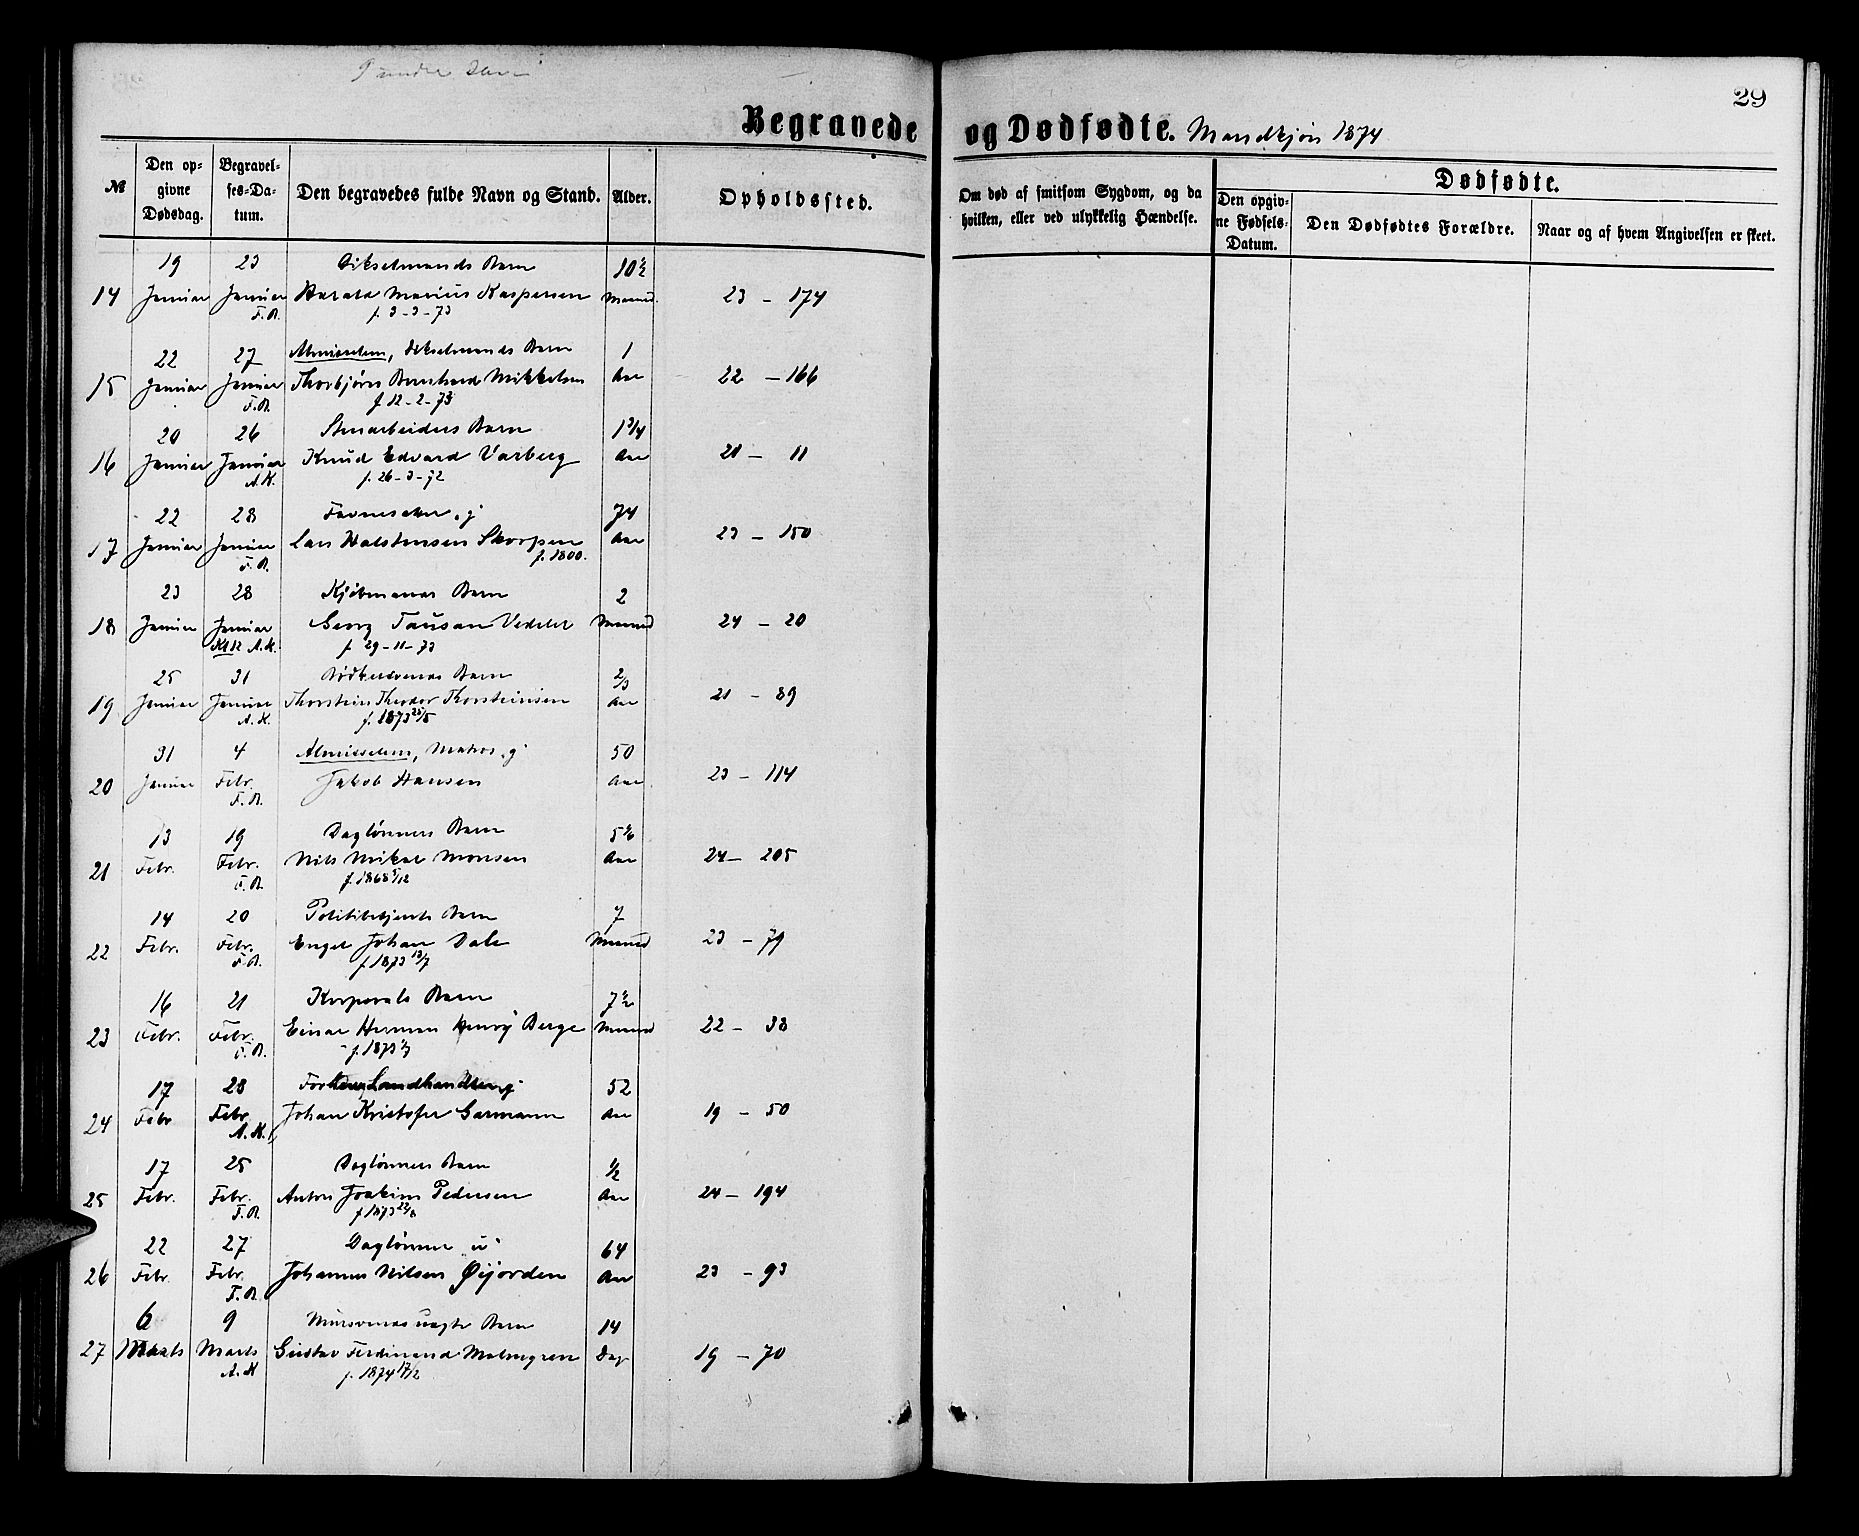 29
Begravede og Dødfødte. Mandkjøn 1874
№
Den opgivne Dødsdag.
Begravelses-Datum.
Den begravedes fulde Navn og Stand.
Alder.
Opholdssted.
Om død af smitsom Sygdom, og da hvilken, eller ved ulykkelig Hændelse.
Dødfødte.
Den opgivne Fødsels-Datum.
Den Dødfødtes Forældre.
Naar og af hvem Angivelsen er skeet.
19 23 Barn 10½
14 Januar Januar Harald Marius Kaspersen Maaned. 23 - 174
F.B. f. 3-3-73
22 27 Almisselem, Barn 1
15 Januar Januar Thorbjørn Bernhard Mikkelsen Aar 22 - 166
F.B. f 12-2-73
20 26 Stenarbeiders Barn 1¾
16 Januar Januar Knud Edvard Varberg Aar 21 - 11
A.K. f. 26-3-72
22 28 g 74
17 Januar Januar Lars Halstensen Skorpen Aar 23 - 150
F.B. f. 1800.
23 28 Kjøbmands Barn 2
18 Januar Januar Georg Tausan Vedeler Maaned 24 - 20
A.K. f 29-11-73
25 31 Bødkersvends Barn 2/3
19 Januar Januar Thorstein Theodor Thorsteinsen Aar 21 - 89
A.K. f. 1873 25/5
31 4 Almisselem, Matros, g 50
20 Januar Febr. Jakob Hansen Aar 23 - 114
F.B.
13 19 Dagløнners Barn 5⅙
21 Febr. Febr. Nils Mikal Monsen Aar 24 - 205
F.B. f. 1868 5/12
14 20 Politibetjents Barn 7
22 Febr. Febr. Engel Johan Dale Maaned 23 - 79
F.B. f. 1873 13/7
16 21 Korporals Barn 7½
23 Febr. Febr. Einar Herman Henry Berge Maaned 22 - 38
F.B. f. 1873
17 28 Landhandler g 52
24 Febr Febr. Johan Kristofer Garmann Aar 19 - 50
A.K.
17 25 Dagløнners Barn ½
25 Febr. Febr. Anton Joakim Pedersen Aar 24 - 194
F.B. f 1873 22/8
22 27 Dagløнner u 64
26 Febr. Febr. Johannes Nilsen Øijorden Aar 23 - 93
F.B.
6 9 Mursvends uægte Barn 14
27 Marts Marts Gustav Ferdinand Malmgren Dage 19 - 70
A.K f. 1874 17/2